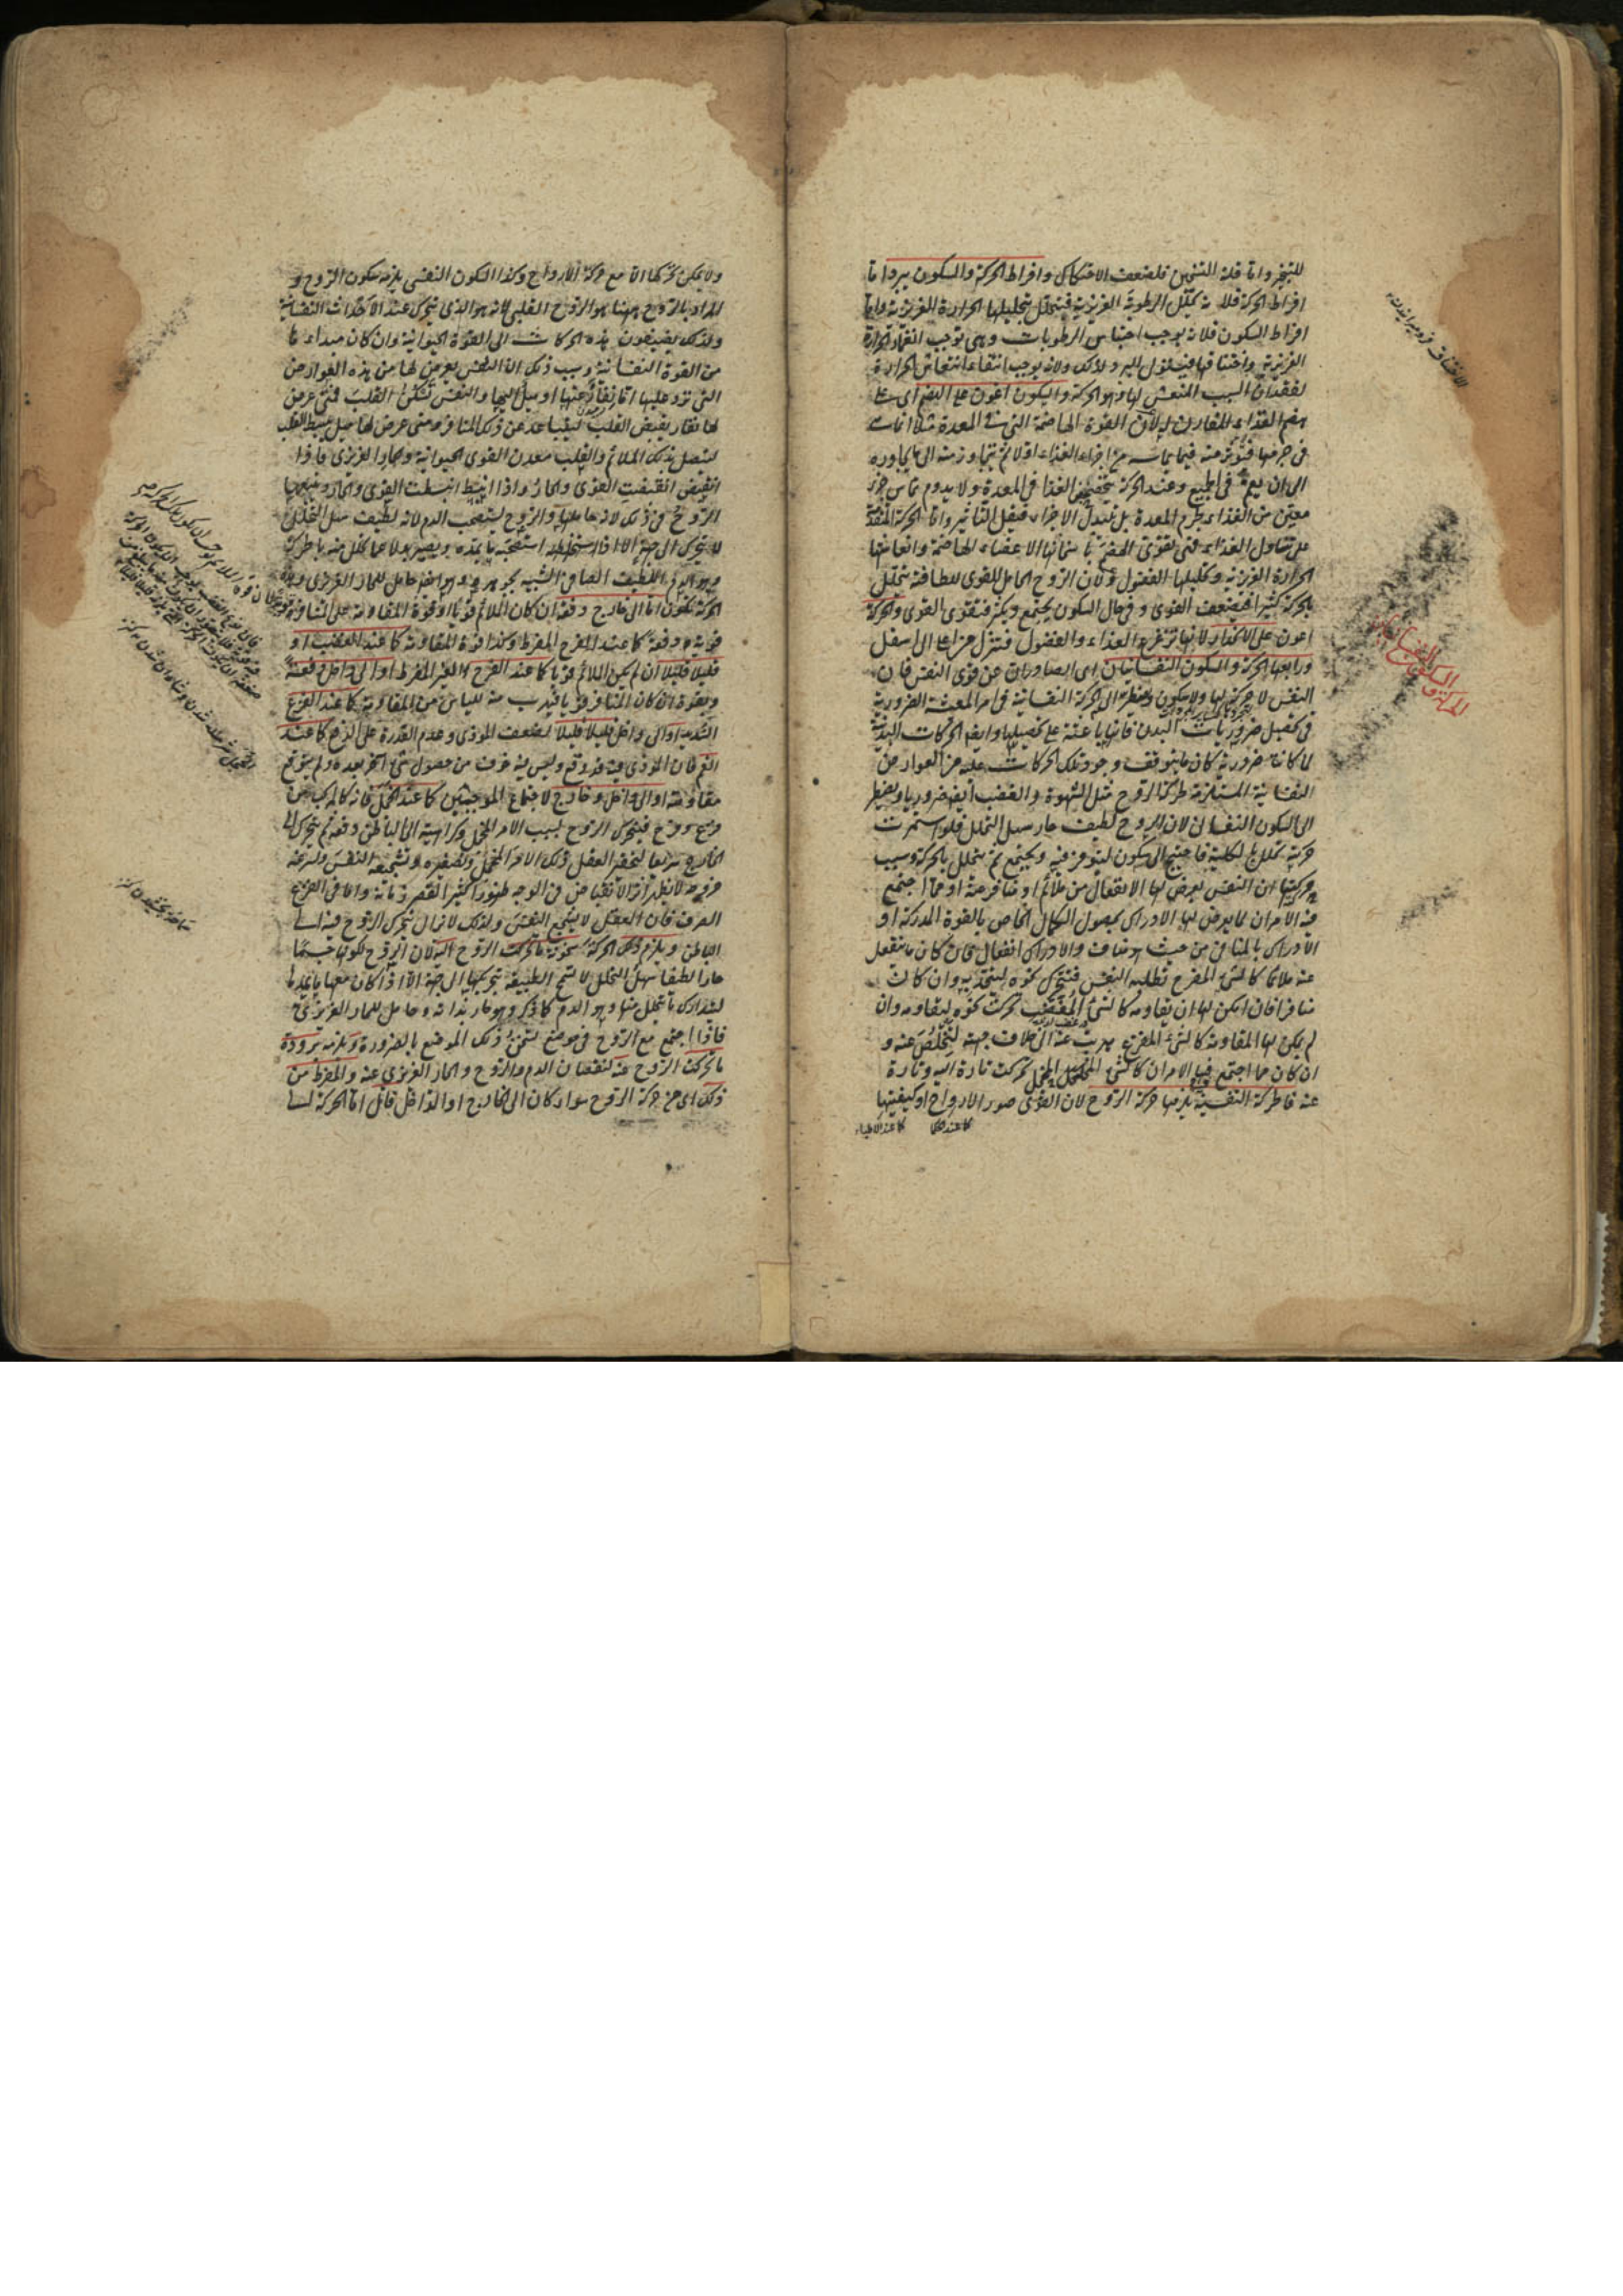 للتبخر واما قلة التسخين فلضعف الاحتكاك وافراط الحركة والسكون يبرد اما
افراط الحركة فلانه يحلل الرطوبة الغريزية فيتحلل بتحليلها الحرارة الغريزية واما
افراط السكون فلانه يوجب احتباس الرطوبات وهى توجب انغمار الحرارة
الغريزية واختناقها فيئول الى البرد وكذلك ولانه يوجب انتفاء انتعاش الحرارة
لفقدان السبب المنعش لها وهو الحركة والسكون اعون على الهضم اى على
هضم الغذاء المقارن له لان القوة الهاضمة التى فى المعدة مثلا انما هى
فى جرمها فتؤثر منه فيما يماسه من اجزاء الغذاء اولا ثم يتجاوز منه الى ما يجاوره
الى ان يعم فى الجميع وعند الحركة يتخضخض الغذا فى المعدة ولا يدوم تماس جزء
معين من الغذاء بجرم المعدة بل تتبدل الاجزاء فيقل التاثير واما الحركة المتقدمة
على تناول الغذاء فهى تقوى الهضم باسخانها الاعضاء الهاضمة وانعاشها
الحرارة الغريزية وتحليلها الفضول ولان الروح الحامل للقوى للطافته يتحلل
بالحركة كثيرا فيضعف القوى وفى حال السكون يجتمع ويكثر فتقوى القوى والحركة
اعون على الانحدار لانها تزعزع الغذاء والفضول فتنزل عنها الى اسفل
ورابعها الحركة والسكون النفسانيان اى الصادران عن قوى النفس فان
النفس لا حركة لها ولا سكون ويضطر الى الحركة النفسانية فى امر المعيشة الضرورية
فى تحصيل ضروريات البدن فانها باعثة على تحصيلها وايضا الحركات البدنية
لما كانت ضرورية كان ما يتوقف وجود تلك الحركات عليه من العوارض
النفسانية المستلزمة لحركة الروح مثل الشهوة والغضب ايضا ضروريا ويضطر
الى السكون النفسانى لان الروح لطيف حار سهل التحلل فلو استمرت
حركته تحلل بالكلية فاحتيج الى سكون ليتوفر فيه ويجتمع ثم يتحلل بالحركة وسبب
حركتها ان النفس يعرض لها الانفعال من ملائم او منافر عنه او مما اجتمع
فيه الامران لما يعرض لها الادراك بحصول الكمال الخاص بالقوة المدركة او
الادراك بالمنافى من حيث هو مناف والادراك انفعال فان كان ما ينفعل
عنه ملائما كالشئ المفرح تطلبه النفس فتتحرك نحوه لتتحد به وان كانت
منافرا فان امكن لها ان يقاومه كالشئ المغضب تحركت نحوه ليقاومه وان
لم يكن لها المقاومة كالشئ المفزع هربت عنه الى خلاف جهته لتخلص عنه و
ان كان مما اجتمع فيه الامران كالشئ المخجل تحركت تارة اليه وتارة
عنه فالحركة النفسية يلزمها حركة الروح لان القوى صور الارواح او كيفيتها
كما عند الحكما كما عند الاطباء
الحركة والسكون النفسانيان
ولا يمكن تحركها الا مع حركة الارواح وكذا السكون النفسى يلزمه سكون الروح و
المراد بالروح ههنا هو الروح القلبى لانه هو الذى يتحرك عند الاحداث النفسانية
ولذلك يضيفون هذه الحركات الى القوة الحيوانية وان كان مبداءها
من القوة النفسانية وسبب ذلك ان النفس يعرض لها من هذه العوارض
التى ترد عليها اما نفار عنها او ميل اليها والنفس تسكن القلب فمتى عرض
لها نفار يقبض القلب ليتباعد عن ذلك المنافر ومتى عرض لها ميل يبسط القلب
ليتصل بذلك الملائم والقلب معدن القوى الحيوانية والحار الغريزى فاذا
انقبض انقبضت القوى والحار واذا انبسط انبسطت القوى والحار ويتبعهما
الروح فى ذلك لانه حاملها والروح يستصحب الدم لانه لطيف سهل التحلل
لا يتحرك الى جهة الا اذا استصحب ما يمده ويصير بدلا عما يتحلل منه بالحركة
وهو الدم اللطيف الصافى الشبيه بجوهره وهو ايضا حامل للحار الغريزى وتلك
الحركة تكون اما الى خارج دفعة ان كان الملائم قويا او قوة المقاومة على المنافر
قوية دفعة كما عند الفرح المفرط وكذا قوة المقاومة كما عند الغضب او
قليلا قليلا ان لم يكن الملائم قويا كما عند الفرح الغير المفرط او الى داخل دفعة
وبقوة ان كان المنافر قويا فيهرب منه لليأس من المقاومة كما عند الفزع
الشديد او الى داخل قليلا قليلا لضعف الموذى وعدم القدرة على الدفع كما عند
الغم فان الموذى فيه قد وقع وليس فيه خوف من حصول شئ اخر بعده ولم يتوقع
مقاومته او الى داخل وخارج لاجتماع الموجبين كما عند الخجل فانه كالمركب من
فزع وفرح فيتحرك الروح بسبب الامر المخجل وكراهيته الى الباطن دفعة ثم يتحرك الى
الخارج سريعا لتحقير العقل ذلك الامر المخجل وتصغيره وتشجيعه النفس ولسرعة
خروجه لا يظهر اثر الانقباض فى الوجه ظهورا كثيرا لقصر زمانه واما فى الفزع
الصرف فان العقل لا يشجع النفس ولذلك لا يزال يتحرك الروح فيه الى
الباطن ويلزم ذلك الحركة سخونة ما تحركت الروح اليه لان الروح لكونها جسما
حارا لطيفا سهل التحلل لا تسمح الطبيعة بتحركها الى جهة الا اذا كان معها ما يمدها
ليتدارك ما يتحلل منها وهو الدم كما ذكر وهو حار بذاته وحامل للحار الغريزى
فاذا اجتمع مع الروح فى موضع تسخن ذلك الموضع بالضرورة ويلزمه برودة
ما تحركت الروح عنه لنقصان الدم والروح والحار الغريزى عنه والمفرط من
ذلك اى من حركة الروح سواء كان الى الخارج او الداخل قاتل اما الحركة الى